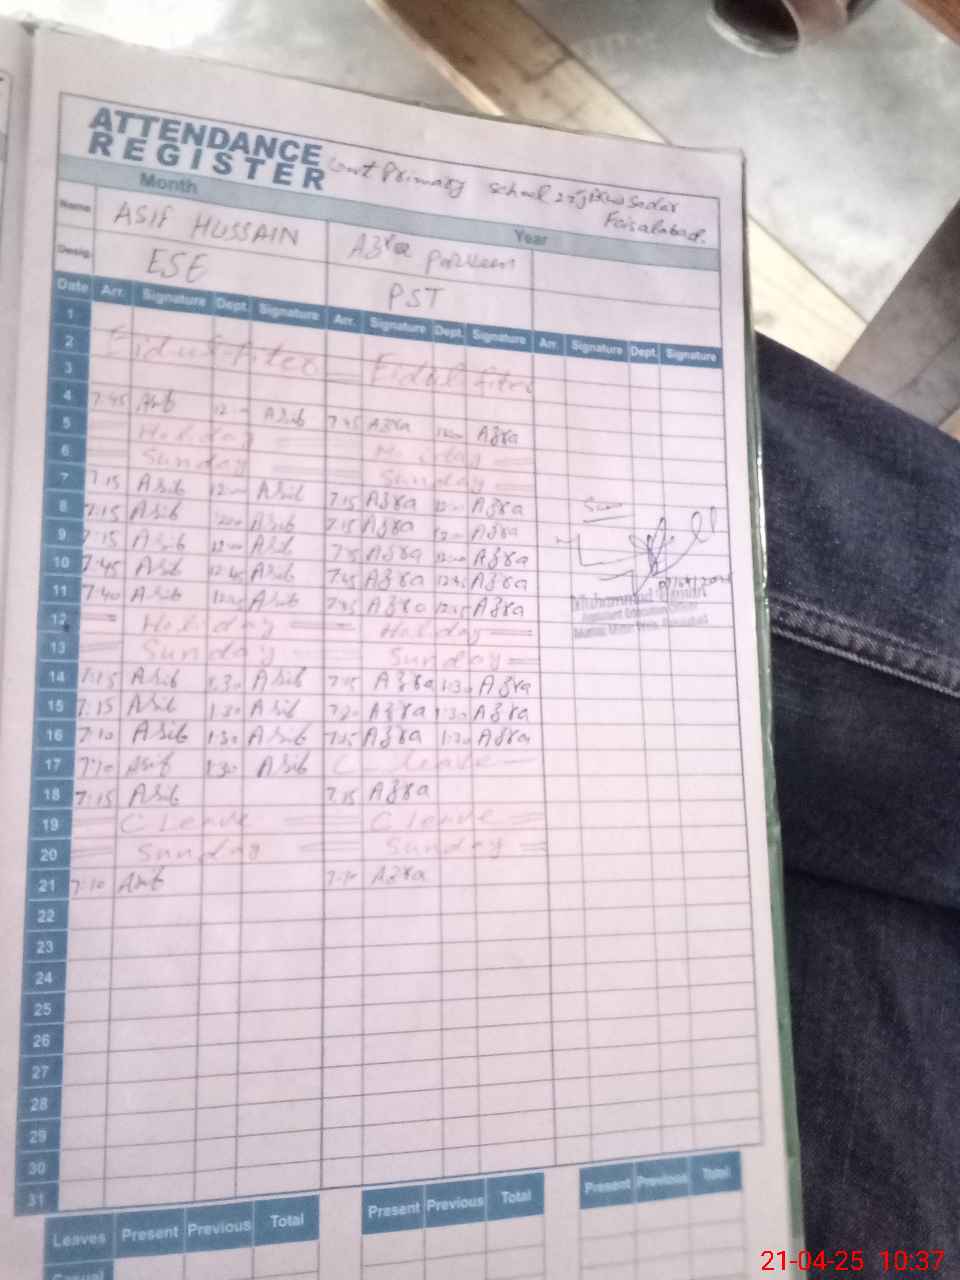 ATTENDANCE
REGISTER
Govt Primary School 27 JB(W) Sadar
Faisalabad.
Month Year
Name ASIF HUSSAIN Azra Parveen
Desig. ESE PST
Date Arr. Signature Dept. Signature Arr. Signature Dept. Signature Arr. Signature Dept. Signature
1
2 Eid ul fiter Eidul fitri
3
4 7:45 Asif 12 Asib 7:45 Azra 12 Azra
5 Holiday Holiday
6 Sunday Sunday
7 7:15 Asib 12 Asib 7:15 Azra 12 Azra
8 7:15 Asib Asib 7:15 Azra 12 Azra
9 7:15 Asib 12 Asib 7:15 Azra 12 Azra
10 7:45 Asib 12:45 Asib 7:45 Azra 12:45 Azra
11 7:40 Asib 12:45 Asib 7:45 Azra 12:45 Azra
12 Holiday Holiday
13 Sunday Sunday
14 7:15 Asib 1:30 Asib 7:15 Azra 1:30 Azra
15 7:15 Asib 1:30 Asib 7:20 Azra 1:30 Azra
16 7:10 Asib 1:30 Asib 7:15 Azra 1:30 Azra
17 7:10 Asib 1:30 Asib C leave
18 7:15 Asib 7:15 Azra
19 C Leave C leave
20 Sunday Sunday
21 7:10 Asib 7:10 Azra
22
23
24
25
26
27
28
29
30
31
Seen
Muhammad
Assistant Education Officer
Leaves Present Previous Total Present Previous Total Present Previous Total
Casual
21-04-25 10:37